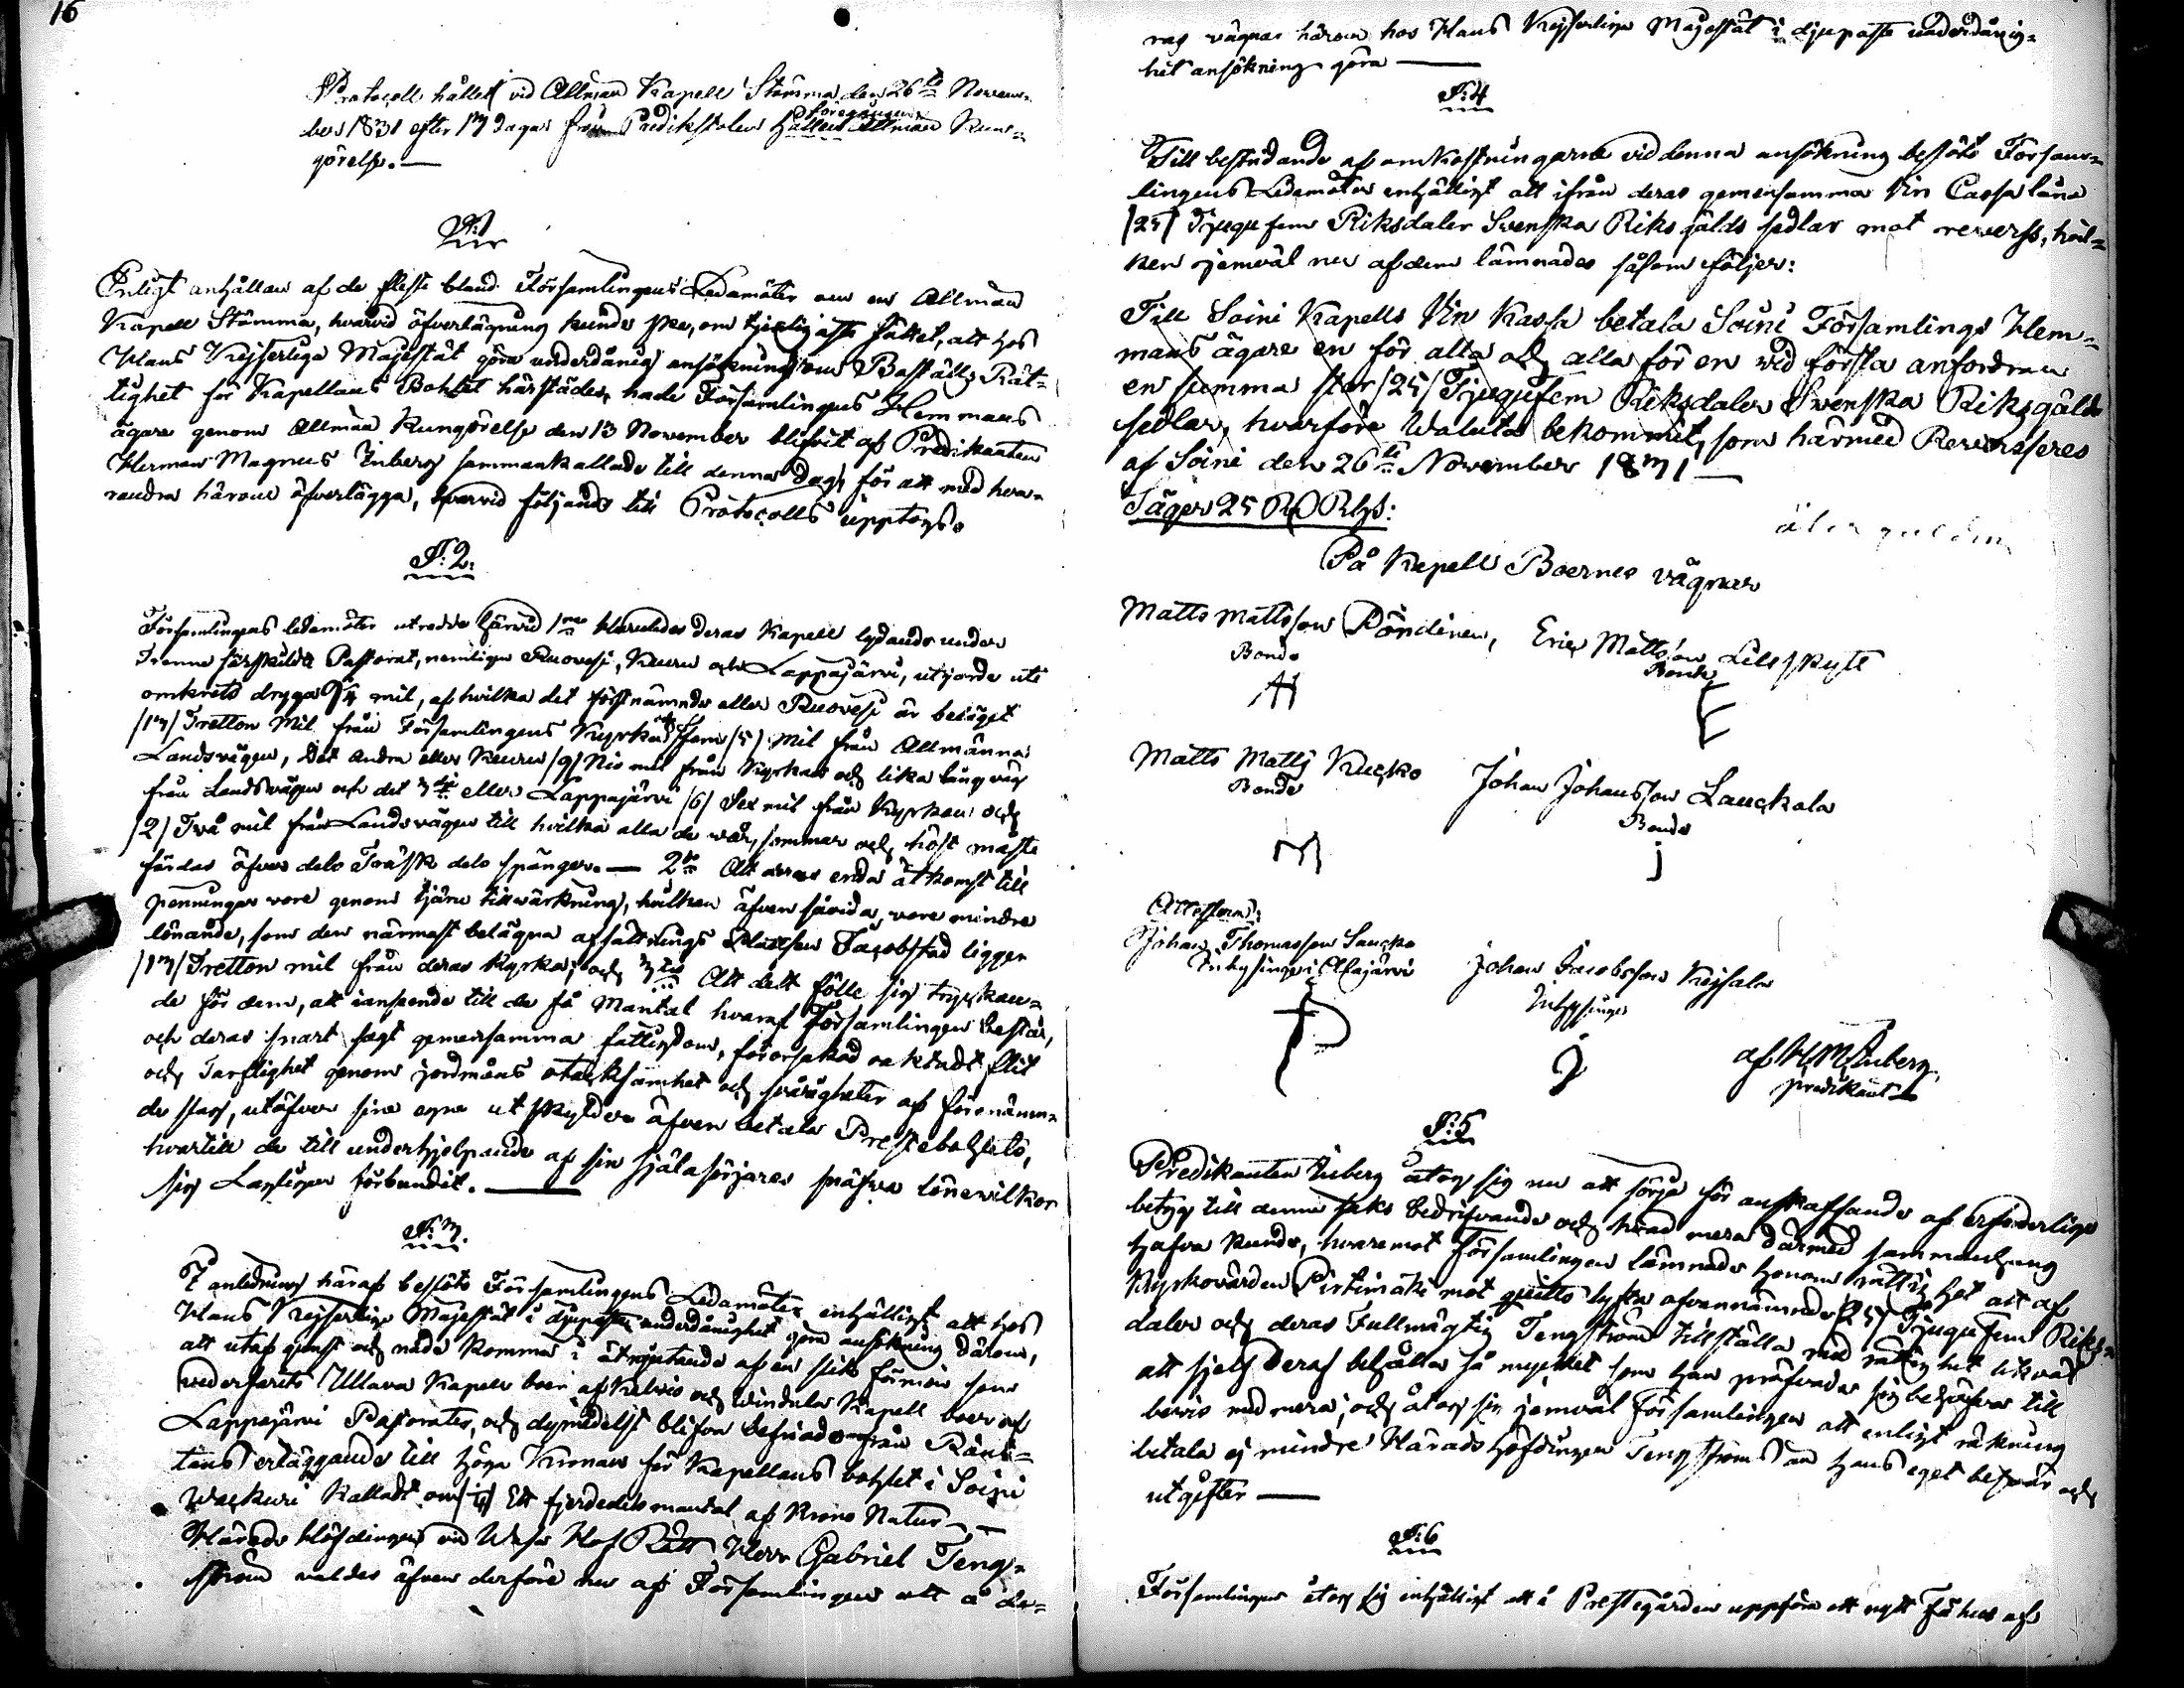 16
Protocoll hållet vid Allmän Kapell Stämma den 26te Novem-
ber 1831 efter 13 dagar från Predikstolen föregången Allmän Kun-
görelse. —
§:1
Enligt anhållan af de fleste bland Församlingens Ledamöter om en Allmän
Kapell Stämma, hvarvid öfverlägning kunde ske, om tjenligaste sättet, att hos
Hans Kejserliga Majestät göra underdånig ansökning om Boställs Rät-
tighet för Kapellans Bohlet härstädes, hade Församlingens Hemmans
ägare genom Allmän Kungörelse den 13 November blifvit af Predikanten
Herman Magnus Inberg sammankallade till denna dag, för att med hva-
randra härom öfverlägga, hvarvid följande till Protocolls upptogs.
§:2.
Församlingens ledamöter utredde härvid 1mo Huruledes deras Kapell lydande under
Trenne särskilda Pastorat, nemligen Ruovesi, Keuru och Lappajärvi, utgjorde uti
omkrets dryga mil, af hvilka det förstnämnde eller Ruovesi är beläget
/13/ Tretton Mil från Församlingens Kyrka och Fem /5/ Mil från Allmänna
Landsvägen, Det Andra eller Keuru /9/ Nio mil från Kyrkan och lika lång väg
från Landsvägen och det 3dje eller Lappajärvi /6/ Sex mil från Kyrkan och
/2/ Två mil från Landsvägen till hvilka alla de vår, sommar och höst måste
färdas öfver dels Träsk dels spänger. — 2do Att deras enda åtkomst till
penningar vore genom tjäru tillwärkning, hvilken äfven såvida, vore mindre
lönande, som den närmast belägna afsättnings Platsen Jacobstad ligger
/13/ Tretton mil från deras Kyrka; och 3tio Att dett fölle sig tryckan-
de för dem, att i anseende till de få Mantal hvaraf Församlingen består,
och deras snart sagt gemensamma fattigdom, förorsakad oaktadt flit
och Tarflighet genom jordmåns otacksamhet och svårigheter af förenämn-
de slag, utöfver sina egna utskylder äfven betala Prestebohlets,
hvartill de till underhjelpande af sin själasörjares knappa lönewilkor
sig Lagligen förbundit. —
§:3.
I anledning häraf beslöto Församlingens Ledamöter enhälligt att hos
Hans Kejserliga Majestät i djupaste underdånighet göra ansökning därom,
att utaf gunst och nåde komma i åtnjutande af en slik förmån som
vederfarits Ullava Kapell boer af Kelviå och Windala Kapell boer af
Lappajärvi Pastorater, och dymedelst blifva befriade från Rän-
tans erläggande till höga Kronan för Kapellans bohlet i Soini
Wackuri kalladt om /¼/ Ett fjerdedels mantal af Krono Natur —
Härads Höfdingen vid Wasa Hof Rätt Herr Gabriel Teng-
ström valdes äfven derföre nu af Församlingen att å de-
ras vägnar härom hos Hans Kejserliga Majestät i djupaste underdånig-
het ansökning göra —
§:4
Till bestridande af omkostningarne vid denna ansökning beslöto Försam-
lingens Ledamöter enhälligt att ifrån deras gemensamma Vin Cassa låna
/25/ Tjugu fem Riksdaler Svenska Riksgälds sedlar mot reverss, hvil-
ken jemväl nu af dem lämnades såsom följer:
Till Soini Kapells Vin Kassa betala Soini Församlings Hem-
mans ägare en för alla och alla för en vid första anfordran
en summa stor /25/ Tjugufem Riksdaler Svenska Riksgälds
sedlar, hvarföre Waluta bekommit, som härmed Reverseres
af Soini den 26te November 1831 —
Säger 25 Rd Rgs:
På Kapell Boernes vägnar
Matts Mattsson Pöndinen, Eric Mattsson Lillskytt
Bonde Bonde
Matts Matts Kucko Johan Johansson Lauckala
Bonde Bonde
M J
Attestera:
Johan Thomasson Saucko Johan Jacobsson Keisala
Inhysinge i Alajärvi Inhysinge
af H M Inberg
predikant
§:5
Predikanten Inberg åtog sig nu att sörja för anskaffande af erforderlige
betyg till denne saks bedrifvande och hvad mera därmed sammanhang
hafva kunde, hvaremot Församlingen lämnade honom rättighet att af
Kyrkovärden Pirtimäki mot quitto lyfta ofvannämnde /25/ Tjugu fem Riks-
daler och deras Fullmägtig Tengström tillställa med rättighet likväl
att sjelf deraf behålla så mycket som han pröfvade sig behöfva till
bevis med mera; och åtog sig jemväl Församlingen att enligt räkning
betala ej mindre Härads Höfdingen Tengströms än hans eget besvär och
utgifter —
§:6
Församlingen åtog sig enhälligt att å Prestegården uppföra ett nytt Fähus af